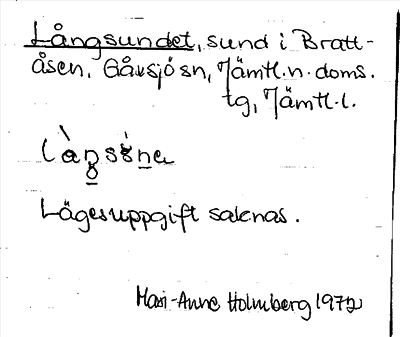 Långsundet, sund i Bratt-
åsen, Gåxsjö sn, Jämtl. n. doms.
tg, Jämtl. l.
Lägesuppgift saknas.
Mari-Anne Holmberg 1972